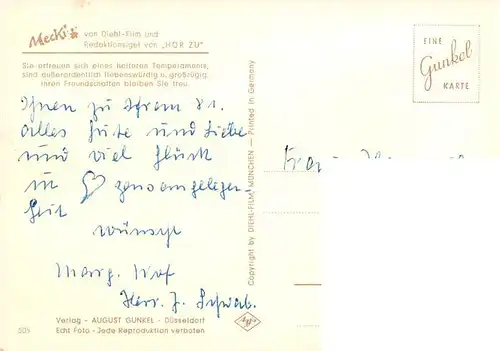 Mecki
von Diehl-Film und
Redaktionsigel von „HÖR ZU"
Sie erfreuen sich eines heiteren Temperaments,
sind außerordentlich liebenswürdig u. großzügig.
Ihren Freundschaften bleiben Sie treu.
Ihnen zu Ihrem 81.
alles Gute und Liebe
und viel Glück
in ♡ gensangelegen-
heit
wünscht
Marg.
Herr. J. Schwab.
Verlag - AUGUST GUNKEL - Düsseldorf
509
Echt Foto - Jede Reproduktion verboten
Copyright by DIEHL-FILM MÜNCHEN — Printed in Germany
EINE
Gunkel
KARTE
Agfa